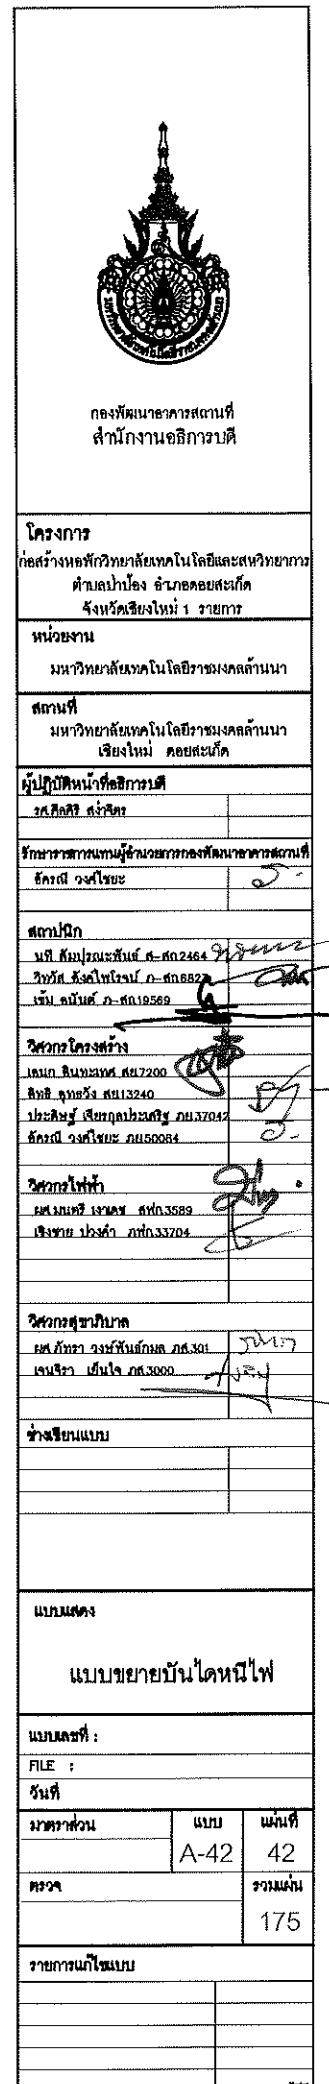 กองพัฒนาอาคารสถานที่
สำนักงานอธิการบดี
โครงการ
ก่อสร้างหอพักวิทยาลัยเทคโนโลยีและสหวิทยาการ
ตำบลป่าป้อง อำเภอดอยสะเก็ด
จังหวัดเชียงใหม่ 1 รายการ
หน่วยงาน
มหาวิทยาลัยเทคโนโลยีราชมงคลล้านนา
สถานที่
มหาวิทยาลัยเทคโนโลยีราชมงคลล้านนา
เชียงใหม่ ดอยสะเก็ด
ผู้ปฏิบัติหน้าที่อธิการบดี
รศ.ศีลศิริ สง่าจิตร
รักษาราชการแทนผู้อำนวยการกองพัฒนาอาคารสถานที่
อัครณี วงศ์ไชยะ
สถาปนิก
นที สัมปุรณะพันธ์ ส-สถ2464
วิทวัส สิงค์ไพโรจน์ ภ-สถ8827
เข้ม อนันต์ ภ-สถ19569
วิศวกรโครงสร้าง
เอนก สินทะเทศ สย7200
สิทธิ อุทธวัง สย13240
ประดิษฐ์ เจียรกุลประเสริฐ ภย37042
อัครณี วงศ์ไชยะ ภย50084
วิศวกรไฟฟ้า
ผศ.มนตรี เงาเดช สฟก.3589
เชิงชาย ปวงคำ ภฟก.33704
วิศวกรสุขาภิบาล
ผศ.ภัทรา วงษ์พันธ์กมล ภส.301
เจนจิรา เย็นใจ ภส.3000
ช่างเขียนแบบ
แบบแสดง
แบบขยายบันไดหนีไฟ
แบบเลขที่ :
FILE :
วันที่
มาตราส่วน แบบ แผ่นที่
A-42 42
ตรวจ รวมแผ่น
175
รายการแก้ไขแบบ